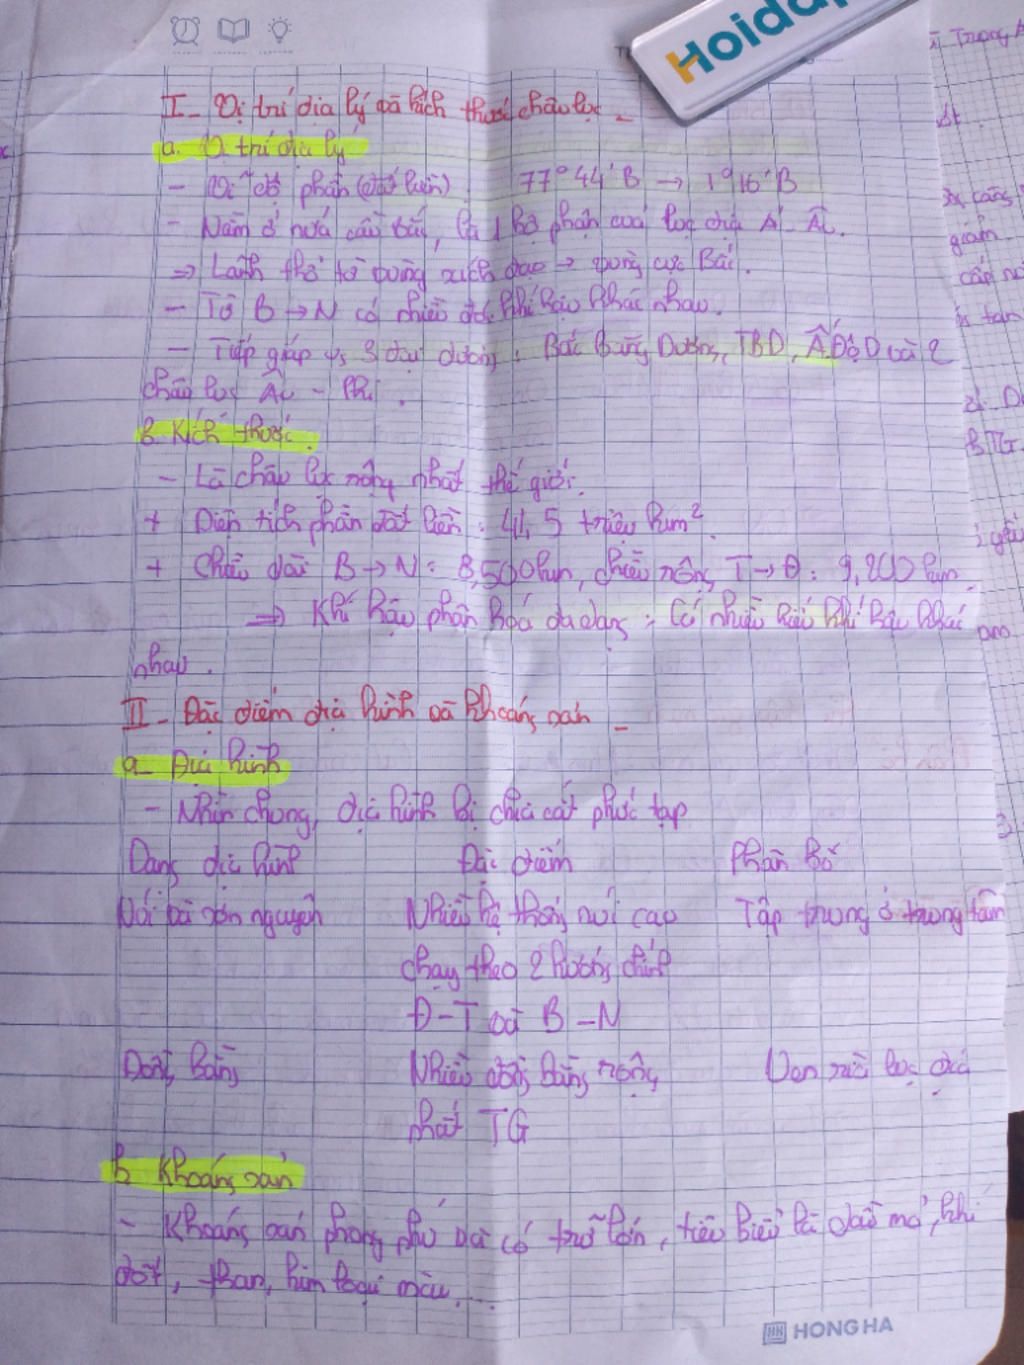 Hoida
I - Vị trí địa lý và kích thước châu lục -
a. Vị trí địa lý
- Vĩ độ phần (đất liền) 77°44'B → 1°16'B
- Nằm ở nửa cầu bắc, là 1 bộ phận của lục địa Á - Âu.
⇒ Lãnh thổ từ vùng xích đạo → vùng cực Bắc.
- Từ B → N có nhiều đới khí hậu khác nhau.
- Tiếp giáp vs 3 đại dương: Bắc Băng Dương, TBD, Ấ Độ D và 2
châu lục Âu - Phi.
b. Kích thước.
- Là châu lục rộng nhất thế giới.
+ Diện tích phần đất liền: 41,5 triệu km²
+ Chiều dài B → N: 8,500km, chiều rộng T → Đ: 9,200km
⇒ Khí hậu phân hoá đa dạng: Có nhiều kiểu khí hậu khác
nhau.
II - Đặc điểm địa hình và khoáng sản -
a - Địa hình
- Nhìn chung, địa hình bị chia cắt phức tạp
Dạng địa hình Đặc điểm Phân bố
Núi và sơn nguyên Nhiều hệ thống núi cao Tập trung ở trung tâm
chạy theo 2 hướng chính
Đ - T và B - N
Đồng bằng Nhiều đồng bằng rộng Ven rìa lục địa
nhất TG
b Khoáng sản
- Khoáng sản phong phú và có trữ lớn, tiêu biểu là dầu mỏ, khí
đốt, than, kim loại màu,...
HONG HA